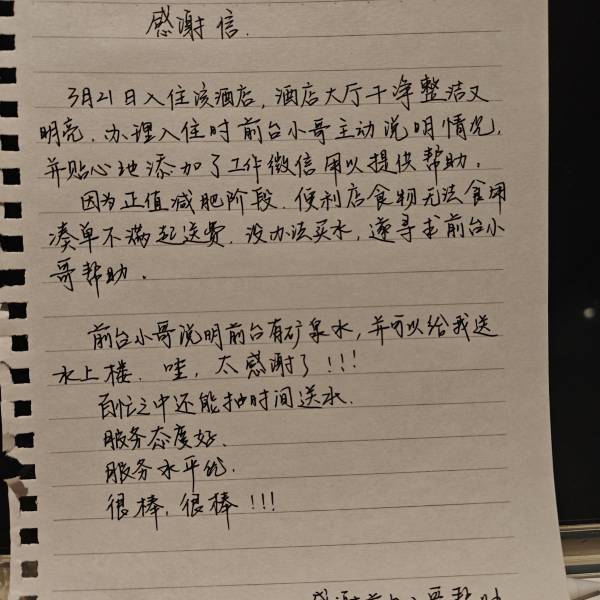 感谢信.
3月21日入住该酒店,酒店大厅干净整洁又
明亮.办理入住时前台小哥主动说明情况,
并贴心地添加了工作微信用以提供帮助。
因为正值减肥阶段.便利店食物无法食用
凑单不满起送费.没办法买水,遂寻求前台小
哥帮助.
前台小哥说明前台有矿泉水,并可以给我送
水上楼.哇,太感谢了!!!
百忙之中还能抽时间送水.
服务态度好.
服务水平优.
很棒,很棒!!!
感谢前台小哥帮助